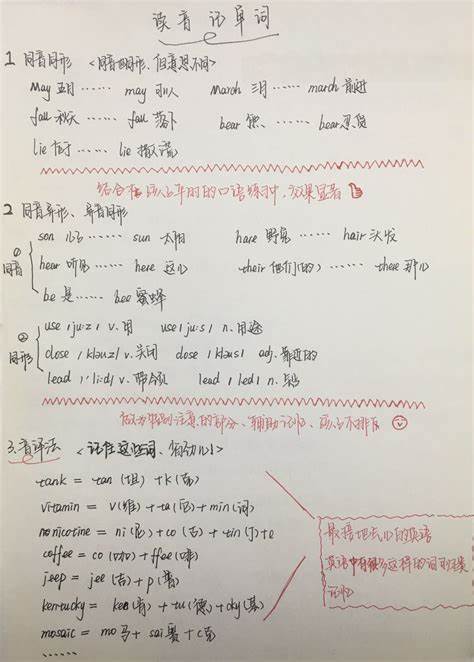 读音记单词
1 同音同形 <同音同形、但意思不同>
May 五月 …… may 可以 March 三月 …… march 前进
fall 秋天 …… fall 落下 bear 熊 …… bear 忍受
lie 位于 …… lie 撒谎
结合在 平时的口语练习中,效果显著
2 同音异形、异音同形
① 同音
son 儿子 …… sun 太阳 hare 野兔 …… hair 头发
hear 听见 …… here 这儿 their 他们(的) …… there 那儿
be 是 …… bee 蜜蜂
② 同形
use /ju:z/ v. 用 use /ju:s/ n. 用途
close /kləuz/ v. 关闭 close /kləus/ adj. 靠近的
lead /li:d/ v. 带领 lead /led/ n. 铅
特别注意的部分、辅助记忆、
3. 音译法 <记住这些词、>
tank = tan (坦) + k (克)
vitamin = v(维) + ta (他) + min (命)
nonicotine = ni (尼) + co (古) + tin (丁) + e
coffee = co (咖) + ffee (啡)
jeep = jee (吉) + p (普)
kentucky = ken (肯) + tu (德) + cky (基)
mosaic = mo 马 + sai 赛 + c 克
……
最接地气儿的英语
英语中有很多这样的词
记忆